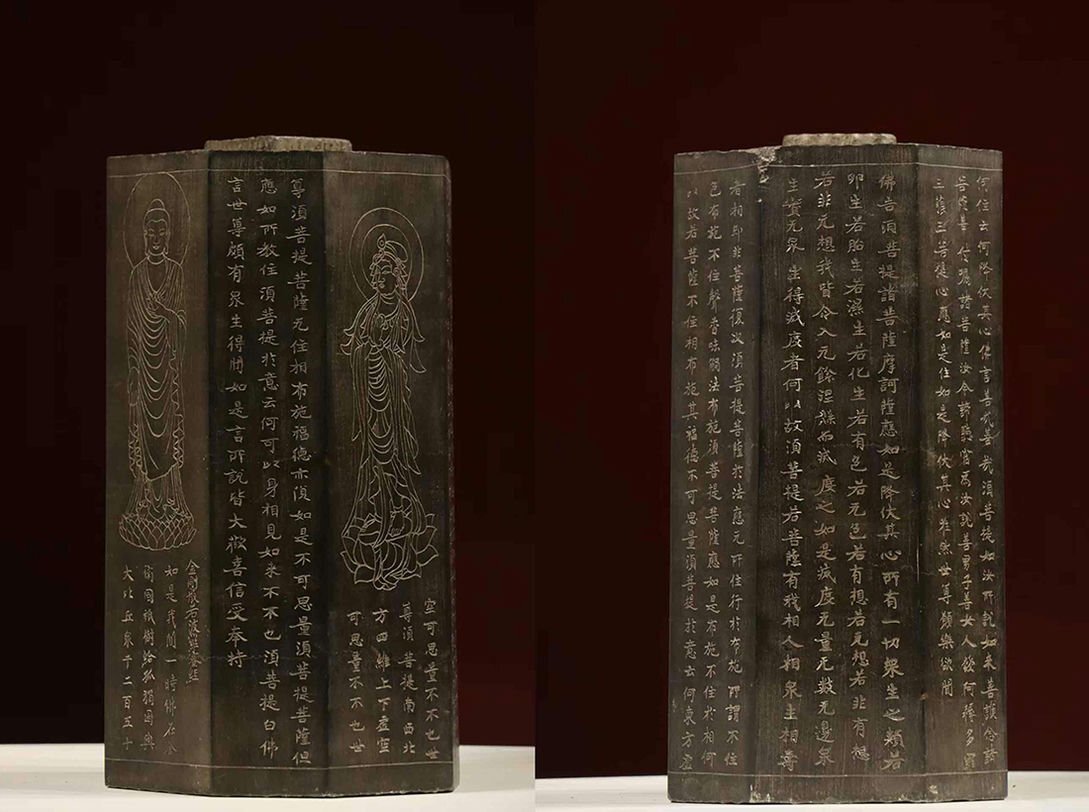 空可思量不不也世
尊須菩提南西北
方四維上下虛空
可思量不不也世
尊須菩提菩薩无住相布施福德亦復如是不可思量須菩提菩薩但
應如所教住須菩提於意云何可以身相見如來不不也須菩提白佛
言世尊頗有眾生得聞如是言所說皆大歡喜信受奉持
金剛般若波羅蜜經
如是我聞一時佛在舍
衛國祇樹給孤獨園與
大比丘眾千二百五十
何住云何降伏其心佛言善哉善哉須菩提如汝所說如來善護念諸
菩薩善付囑諸菩薩汝今諦聽當為汝說善男子善女人發阿耨多羅
三藐三菩提心應如是住如是降伏其心唯然世尊願樂欲聞
佛告須菩提諸菩薩摩訶薩應如是降伏其心所有一切眾生之類若
卵生若胎生若濕生若化生若有色若无色若有想若无想若非有想
若非无想我皆令入无餘涅槃而滅度之如是滅度无量无數无邊眾
生實无眾生得滅度者何以故須菩提若菩薩有我相人相眾生相壽
者相即非菩薩復次須菩提菩薩於法應无所住行於布施所謂不住
色布施不住聲香味觸法布施須菩提菩薩應如是布施不住於相何
以故若菩薩不住相布施其福德不可思量須菩提於意云何東方虛